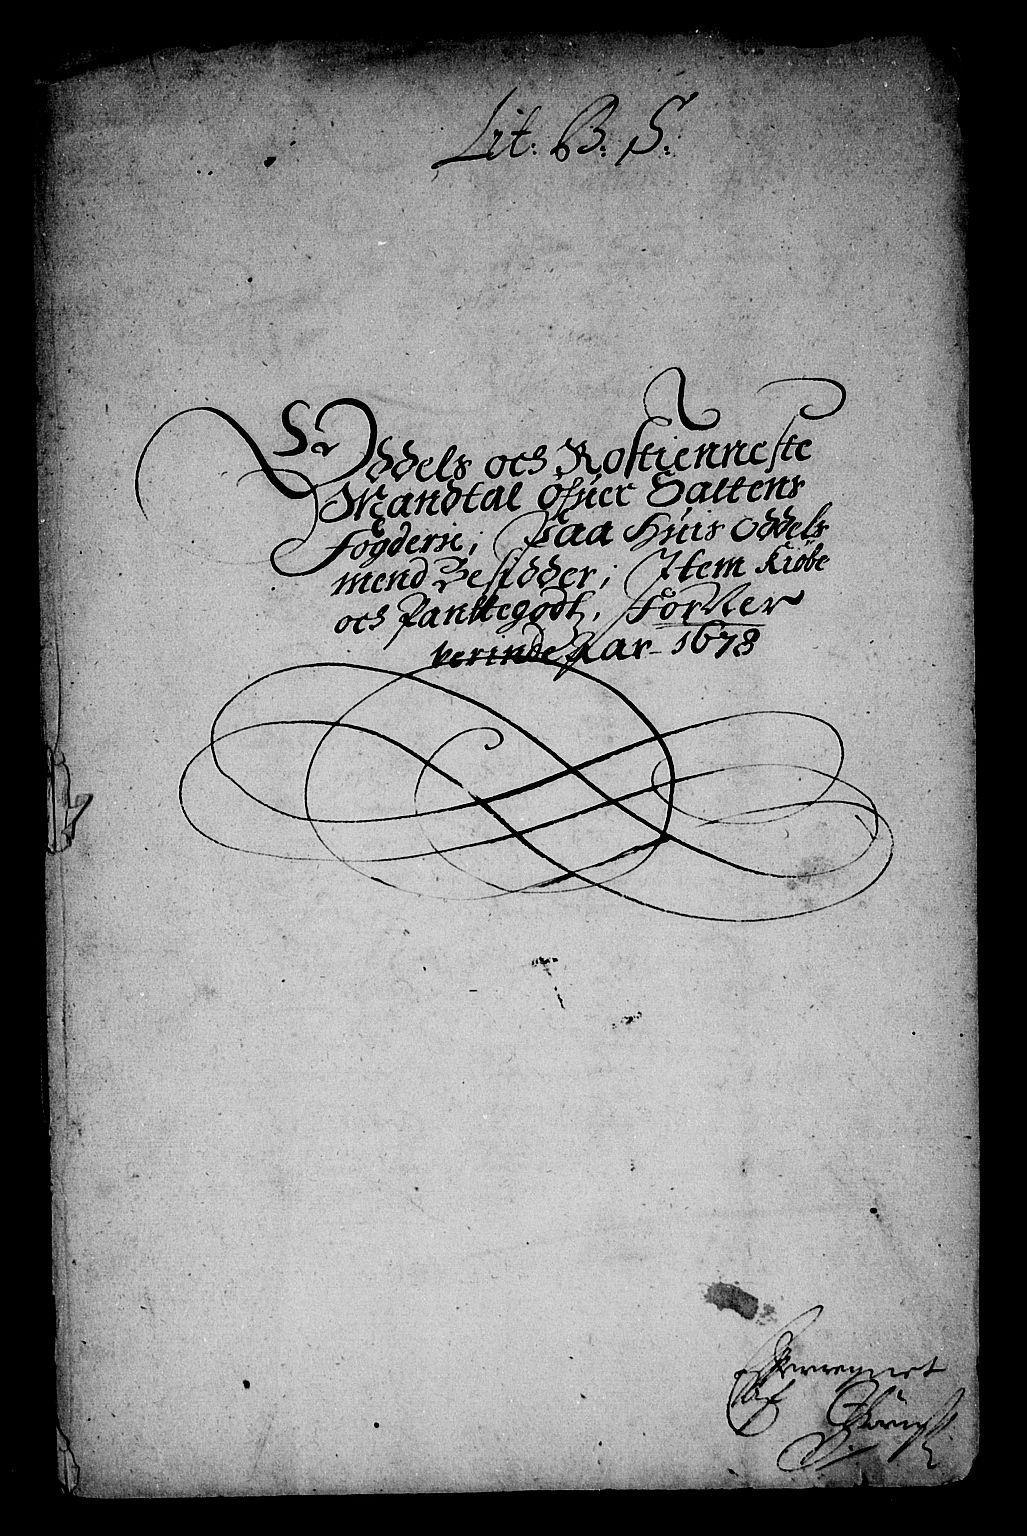 Lit: B: S:
Oddels och Rostienneste
Mandtal ofuer Saltens
Fogderie; Paa huis Oddels
mend Besidder; Item Kiøbe
och Panttegodt, For Ner
verinde Aar 1678